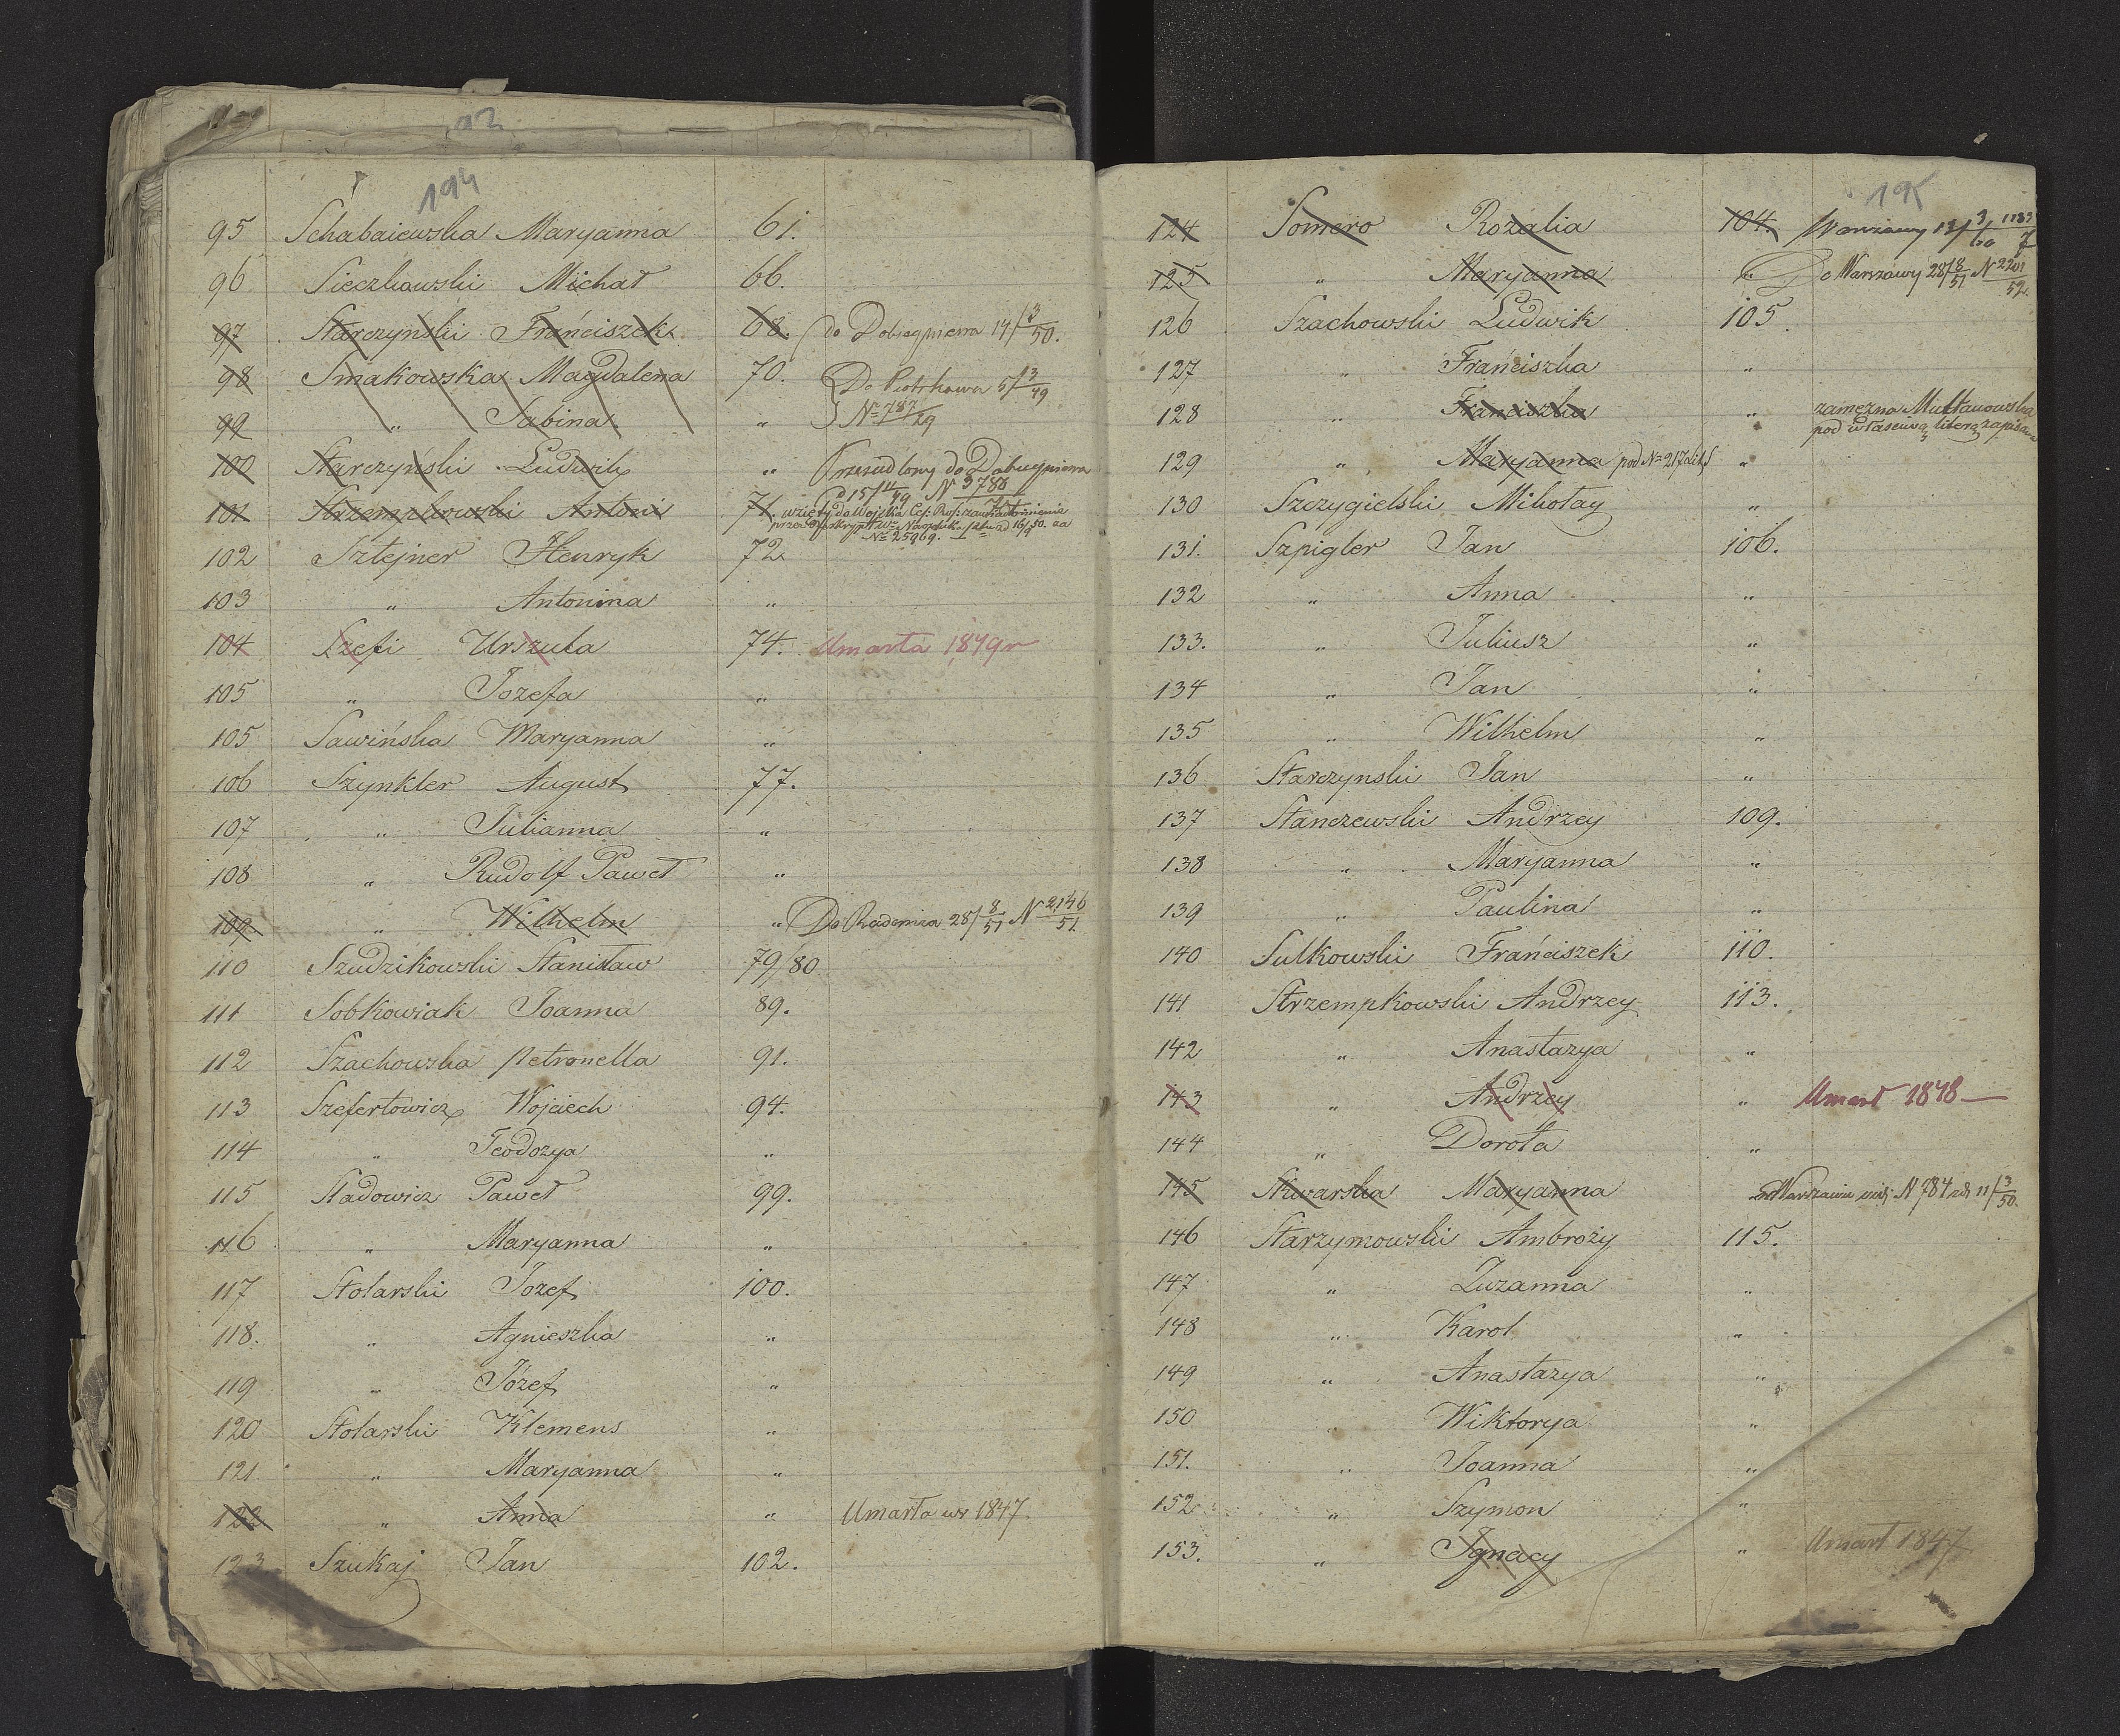 93
194
95 Schabaiewska Maryanna 61.
96 Sieczkowski Michał 66.
97 Starczyński Frańciszek 68. do Dobiegniewa 14/3/50.
98 Smakowska Magdalena 70. Do Piotrkowa 5/3/49
99 " Sabina " Nr 787/29
100 Starczyński Ludwik " Przesiedlony do
15/4/49 N 3788
101 Strzempkowski Antoni 71. wzięty do Wojska Ces: Ros:
Nr 25969.
102 Sztejner Henryk 72.
103 " Antonina "
104 Szefi Urszula 74. Umarła 1849 r
105 " Jozefa "
105 Sawińska Maryanna "
106 Szynkler August 77.
107 " Julianna "
108 " Rudolf Paweł "
109 " Wilhelm " Do Radomia 28/8/51 N 2146/51.
110 Szudzikowski Stanisław 79/80
111 Sobkowiak Joanna 89.
112 Szachowska Petronella 91.
113 Szefertowicz Wojciech 94.
114 " Teodozya "
115 Stadowicz Paweł 99.
116 " Maryanna "
117 Stolarski Jozef 100.
118. " Agnieszka "
119 " Józef "
120 Stolarski Klemens "
121 " Maryanna "
122 " Anna " Umarła w r 1847
123 Szukaj Jan 102.
195
124 Somero Rozalia 104. Warszawy
125 " Maryanna " Do Warszawy 28/8/51 N 2201/52.
126 Szachowski Ludwik 105.
127 " Frańciszka "
128 " Franciszka " zamężna Mułtanowska
pod właściwą literą zapisana
129 " Maryanna pod Nr 217 lit S "
130 Szczygielski Mikołay "
131. Szpigler Jan 106.
132 " Anna "
133. " Juliusz "
134 " Jan "
135 " Wilhelm "
136 Starczynski Jan "
137 Stanczewski Andrzey 109.
138 " Maryanna "
139 " Paulina "
140 Sulkowski Frańciszek 110.
141 Strzempkowski Andrzey 113.
142 " Anastazya "
143 " Andrzey " Umarł 1848
144 " Dorota "
145 Skwarska Maryanna w Warszawie N 784 11/3/50.
146 Starzymowski Ambroży 115.
147 " Zuzanna "
148 " Karol "
149 " Anastazya "
150 " Wiktorya "
151. " Joanna "
152 " Szymon "
153. " Ignacy " Umarł 1847